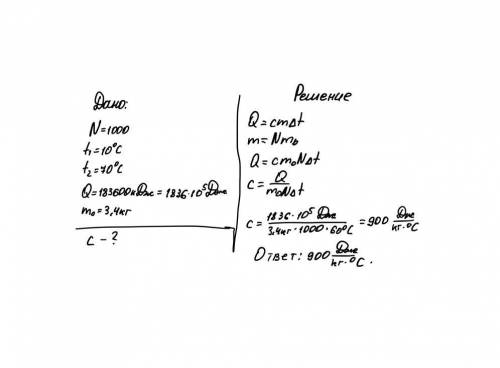 Дано:
N=1000
t₁=10°C
t₂=70°C
Q=183600кДж=1836·10⁵Дж
m₀=3,4кг
c-?
Решение
Q=cmΔt
m=Nm₀
Q=cm₀NΔt
c=Q/m₀NΔt
c=1836·10⁵Дж/3,4кг·1000·60°C=900 Дж/кг·°C
Ответ: 900 Дж/кг·°C.